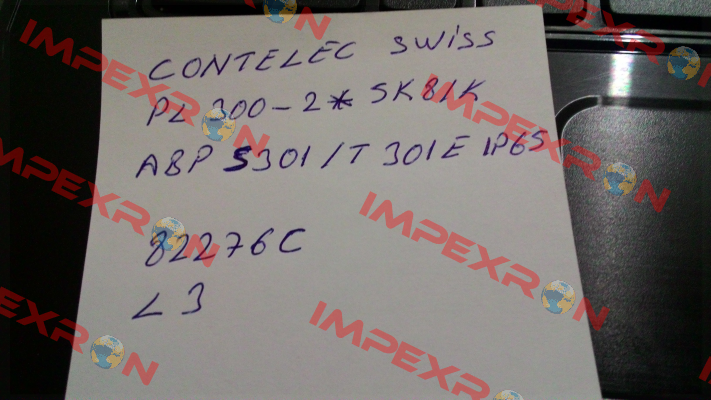 CONTELEC SWISS
PL 300-2* 5K81K
ABP 5301/T 301E IP65
82276C
L3
IMPEXRON
IMPEXRON
IMPEXRON
IMPEXRON
IMPEXRON
IMPEXRON
IMPEXRON